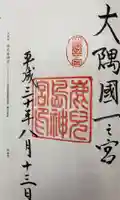 大隅國一之宮
鹿兒
島神
宮印
平成三十年八月十三日